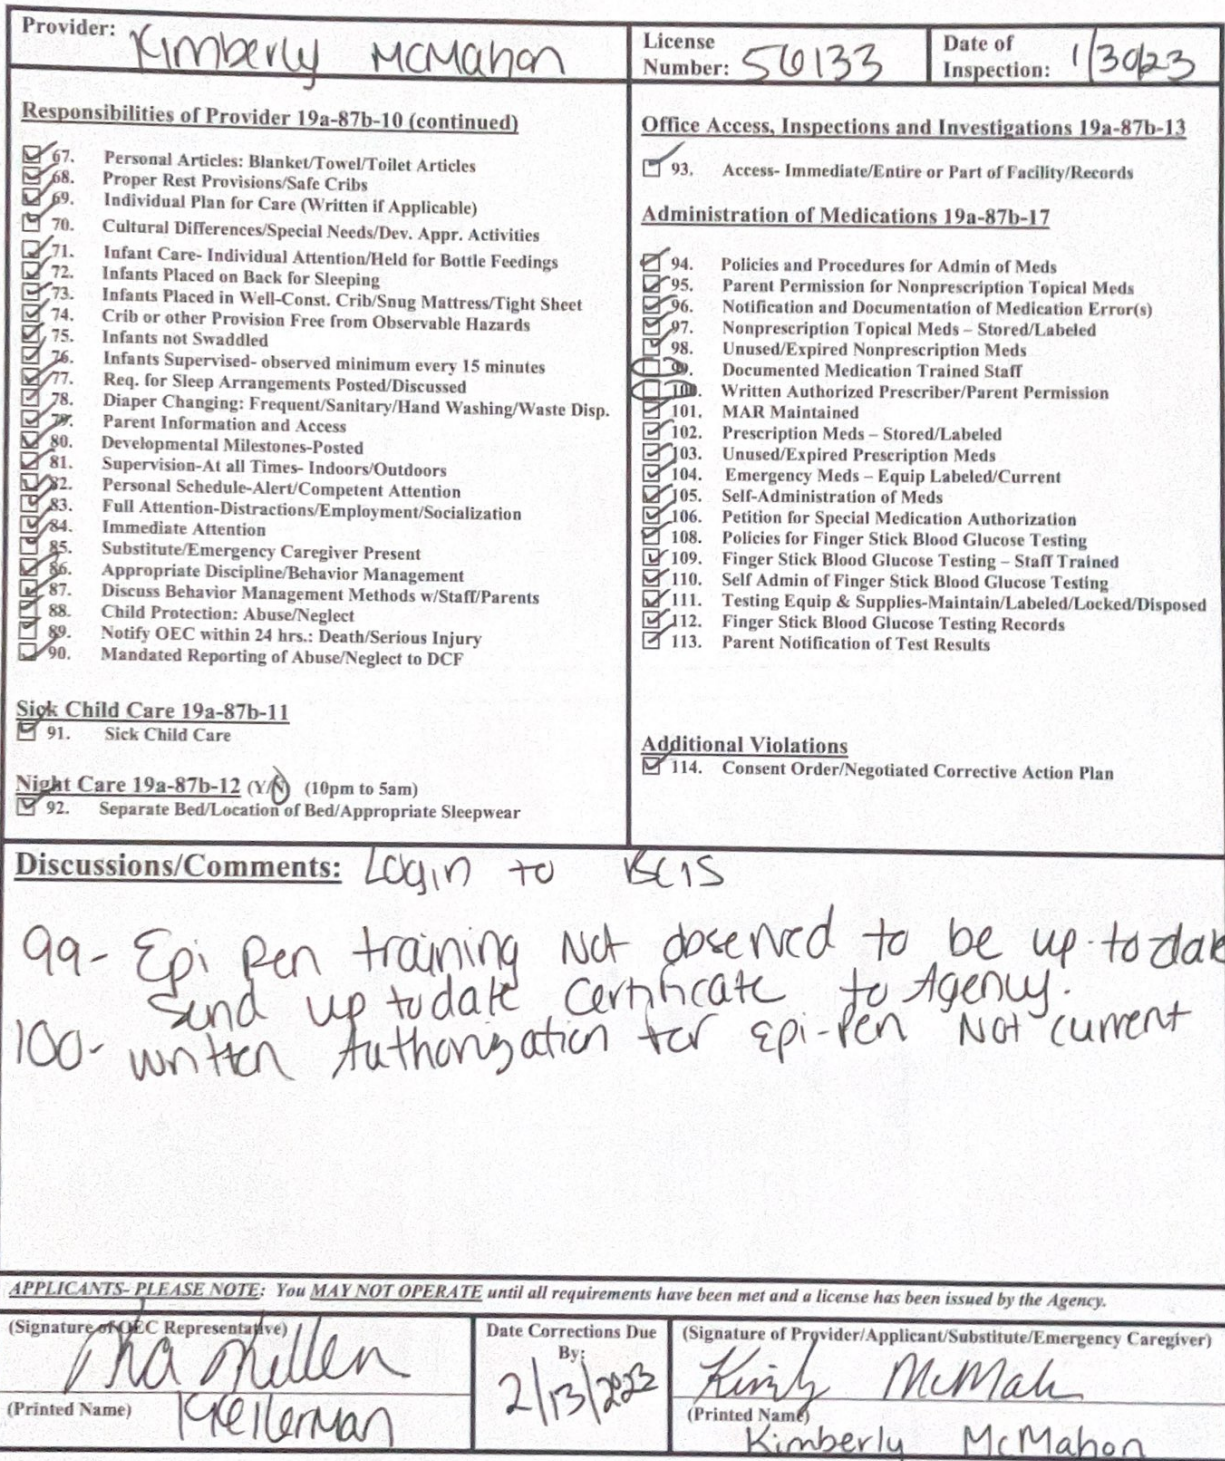 Provider: Kimberly McMahon
License Number: 56133
Date of Inspection: 1/30/23
Responsibilities of Provider 19a-87b-10 (continued)
67. Personal Articles: Blanket/Towel/Toilet Articles
68. Proper Rest Provisions/Safe Cribs
69. Individual Plan for Care (Written if Applicable)
70. Cultural Differences/Special Needs/Dev. Appr. Activities
71. Infant Care- Individual Attention/Held for Bottle Feedings
72. Infants Placed on Back for Sleeping
73. Infants Placed in Well-Const. Crib/Snug Mattress/Tight Sheet
74. Crib or other Provision Free from Observable Hazards
75. Infants not Swaddled
76. Infants Supervised- observed minimum every 15 minutes
77. Req. for Sleep Arrangements Posted/Discussed
78. Diaper Changing: Frequent/Sanitary/Hand Washing/Waste Disp.
79. Parent Information and Access
80. Developmental Milestones-Posted
81. Supervision-At all Times- Indoors/Outdoors
82. Personal Schedule-Alert/Competent Attention
83. Full Attention-Distractions/Employment/Socialization
84. Immediate Attention
85. Substitute/Emergency Caregiver Present
86. Appropriate Discipline/Behavior Management
87. Discuss Behavior Management Methods w/Staff/Parents
88. Child Protection: Abuse/Neglect
89. Notify OEC within 24 hrs.: Death/Serious Injury
90. Mandated Reporting of Abuse/Neglect to DCF
Sick Child Care 19a-87b-11
91. Sick Child Care
Night Care 19a-87b-12 (Y/N) (10pm to 5am)
92. Separate Bed/Location of Bed/Appropriate Sleepwear
Office Access, Inspections and Investigations 19a-87b-13
93. Access- Immediate/Entire or Part of Facility/Records
Administration of Medications 19a-87b-17
94. Policies and Procedures for Admin of Meds
95. Parent Permission for Nonprescription Topical Meds
96. Notification and Documentation of Medication Error(s)
97. Nonprescription Topical Meds – Stored/Labeled
98. Unused/Expired Nonprescription Meds
99. Documented Medication Trained Staff
100. Written Authorized Prescriber/Parent Permission
101. MAR Maintained
102. Prescription Meds – Stored/Labeled
103. Unused/Expired Prescription Meds
104. Emergency Meds – Equip Labeled/Current
105. Self-Administration of Meds
106. Petition for Special Medication Authorization
108. Policies for Finger Stick Blood Glucose Testing
109. Finger Stick Blood Glucose Testing – Staff Trained
110. Self Admin of Finger Stick Blood Glucose Testing
111. Testing Equip & Supplies-Maintain/Labeled/Locked/Disposed
112. Finger Stick Blood Glucose Testing Records
113. Parent Notification of Test Results
Additional Violations
114. Consent Order/Negotiated Corrective Action Plan
Discussions/Comments: Login to BCIS
99- Epi Pen training Not observed to be up-to-date
Send up to date certificate to Agency.
100- written Authorization for Epi-Pen Not current
APPLICANTS- PLEASE NOTE: You MAY NOT OPERATE until all requirements have been met and a license has been issued by the Agency.
(Signature of OEC Representative)
(Printed Name) Kellerman
Date Corrections Due By: 2/13/2023
(Signature of Provider/Applicant/Substitute/Emergency Caregiver)
Kimberly McMahon
(Printed Name)
Kimberly McMahon